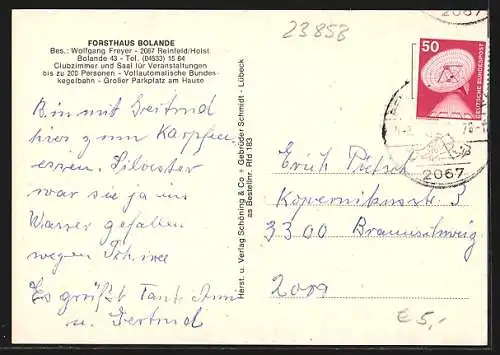 23853
FORSTHAUS BOLANDE
Bes.: Wolfgang Freyer - 2067 Reinfeld/Holst.
Bolande 43 - Tel. (04533) 15 64
Clubzimmer und Saal für Veranstaltungen
bis zu 200 Personen - Vollautomatische Bundes-
kegelbahn - Großer Parkplatz am Hause
50
DEUTSCHE BUNDESPOST
2067
Bin mit Gertrud
hier zum Karpfen
essen. Silvester
war sie ja ins
Wasser gefallen
wegen
Es grüßt Tante
u. Gertrud
Herst. u. Verlag Schöning & Co + Gebrüder Schmidt - Lübeck
as Bestellnr. Rfd 183
Erich
Kopernikusstr. 3
3300 Braunschweig
€ 5,-